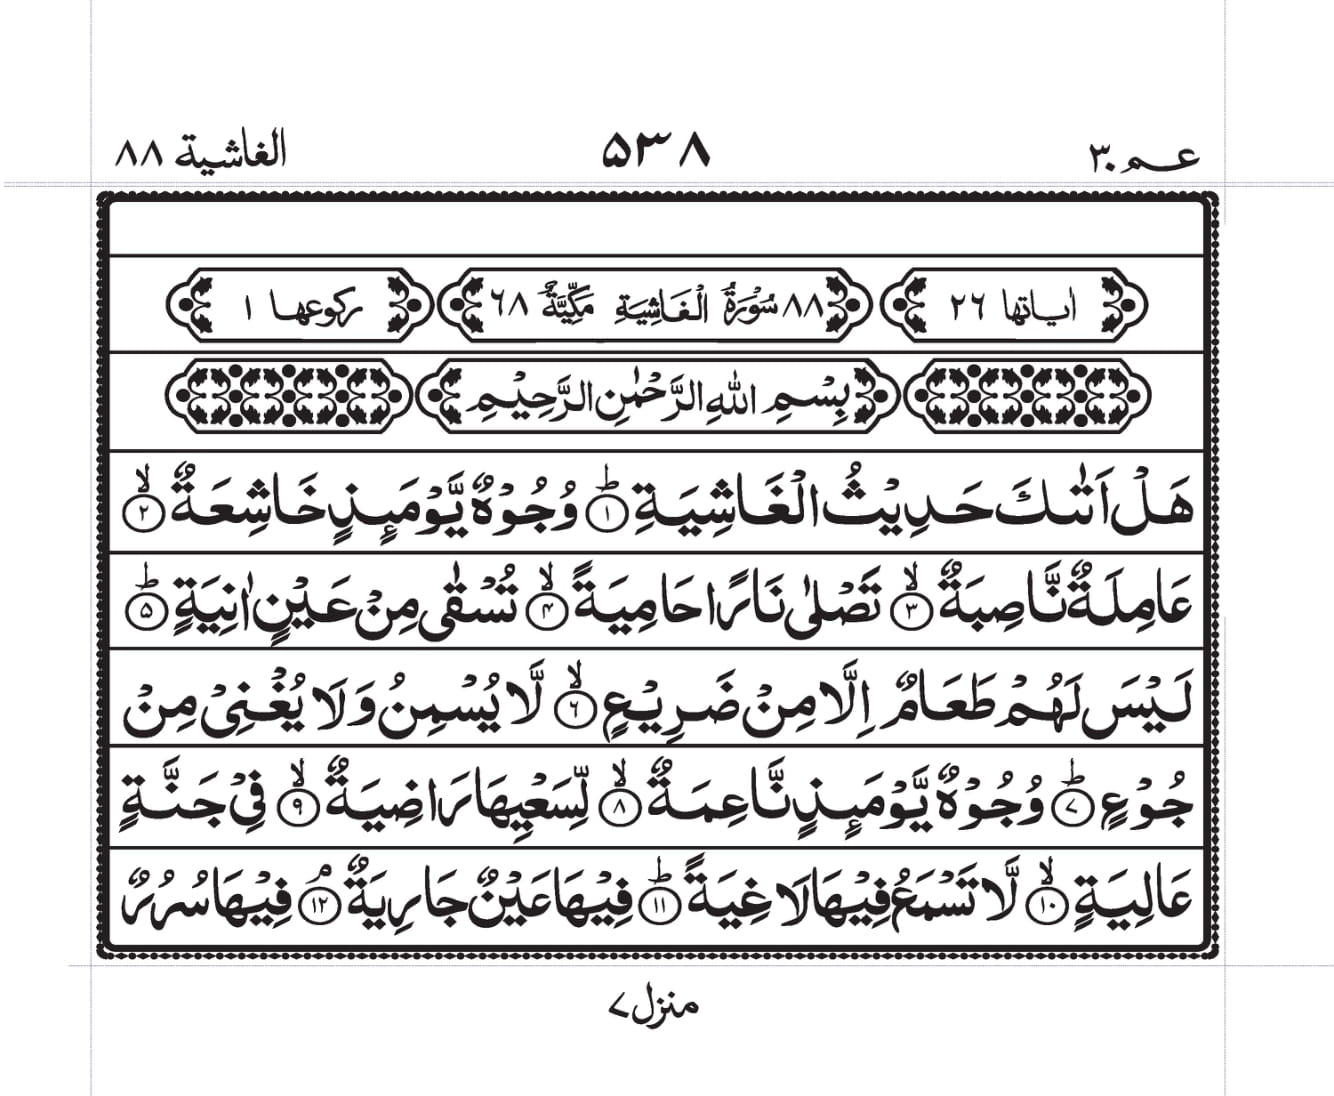 عم ٣٠ ٥٣٨ الغاشية ٨٨
اٰياتها ٢٦ ٨٨ سُوْرَةُ الْغَاشِيَةِ مَكِّيَّةٌ ٦٨ ركوعها ١
بِسْمِ اللّٰهِ الرَّحْمٰنِ الرَّحِيْمِ
هَلْ اَتٰىكَ حَدِيْثُ الْغَاشِيَةِ ؕ﴿١﴾ وُجُوْهٌ يَّوْمَئِذٍ خَاشِعَةٌ ۙ﴿٢﴾
عَامِلَةٌ نَّاصِبَةٌ ۙ﴿٣﴾ تَصْلٰى نَارًا حَامِيَةً ۙ﴿۴﴾ تُسْقٰى مِنْ عَيْنٍ اٰنِيَةٍ ؕ﴿۵﴾
لَيْسَ لَهُمْ طَعَامٌ اِلَّا مِنْ ضَرِيْعٍ ۙ﴿٦﴾ لَّا يُسْمِنُ وَلَا يُغْنِىْ مِنْ
جُوْعٍ ؕ﴿٧﴾ وُجُوْهٌ يَّوْمَئِذٍ نَّاعِمَةٌ ۙ﴿٨﴾ لِّسَعْيِهَا رَاضِيَةٌ ۙ﴿٩﴾ فِىْ جَنَّةٍ
عَالِيَةٍ ۙ﴿١٠﴾ لَّا تَسْمَعُ فِيْهَا لَاغِيَةً ؕ﴿١١﴾ فِيْهَا عَيْنٌ جَارِيَةٌ ۘ﴿١٢﴾ فِيْهَا سُرُرٌ
منزل ٧